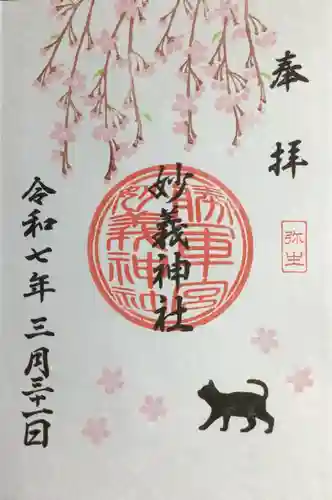 奉拝
弥生
妙義神社
令和七年三月三十一日